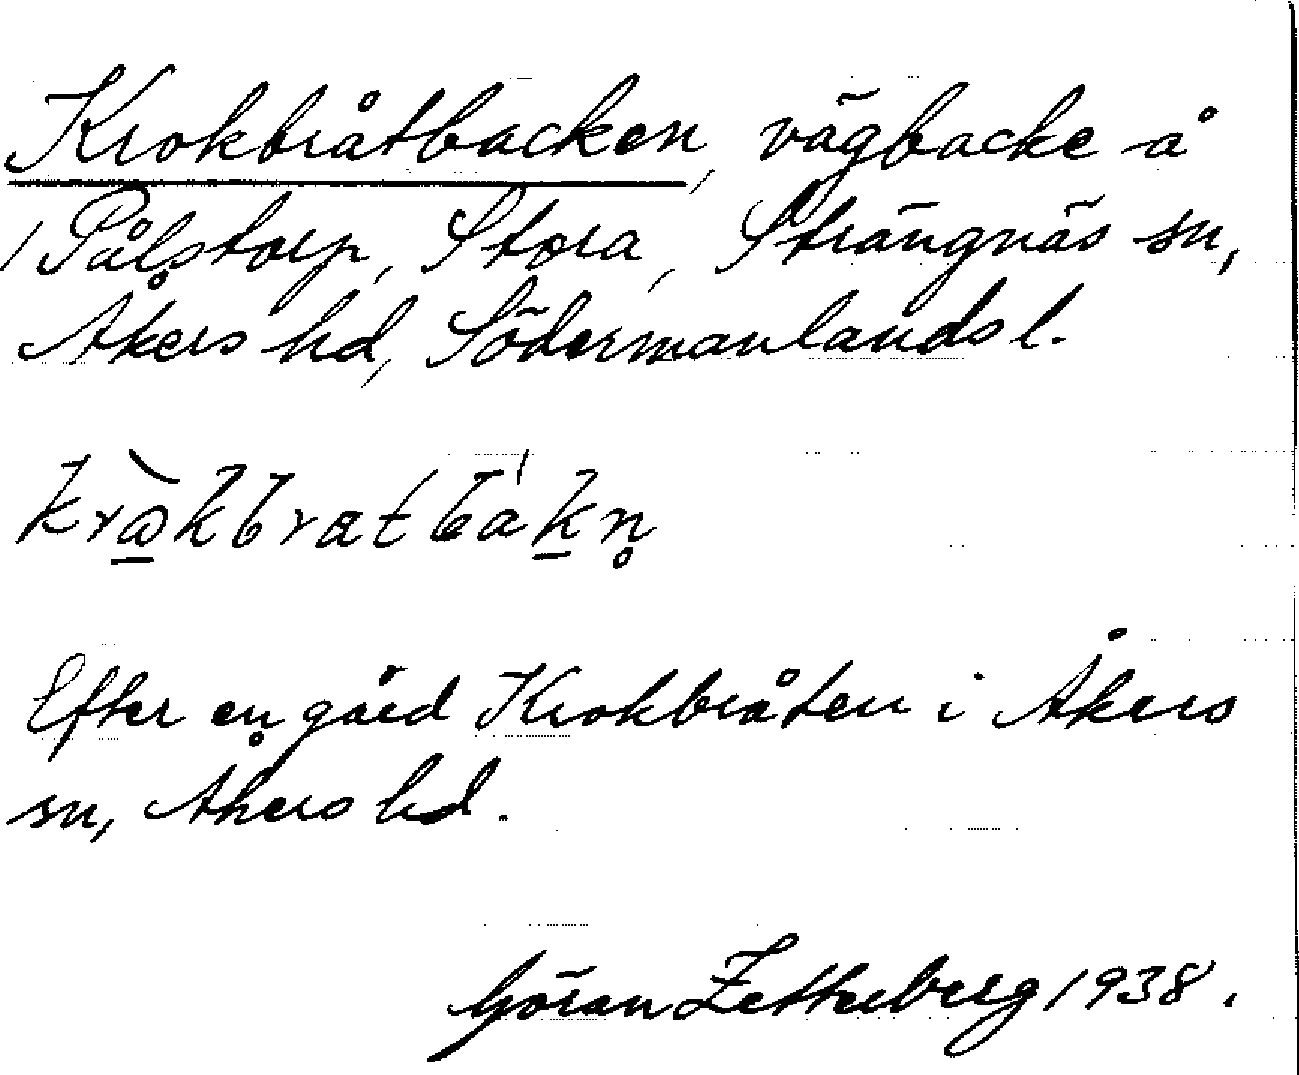 Krokbråtbacken, vägbacke å
Pålstorp, Stora, Strängnäs sn,
Åkers hd, Södermanlands l.
Efter en gård Krokbråten i Åkers
sn, Åkers hd.
Göran Zetheberg 1938.